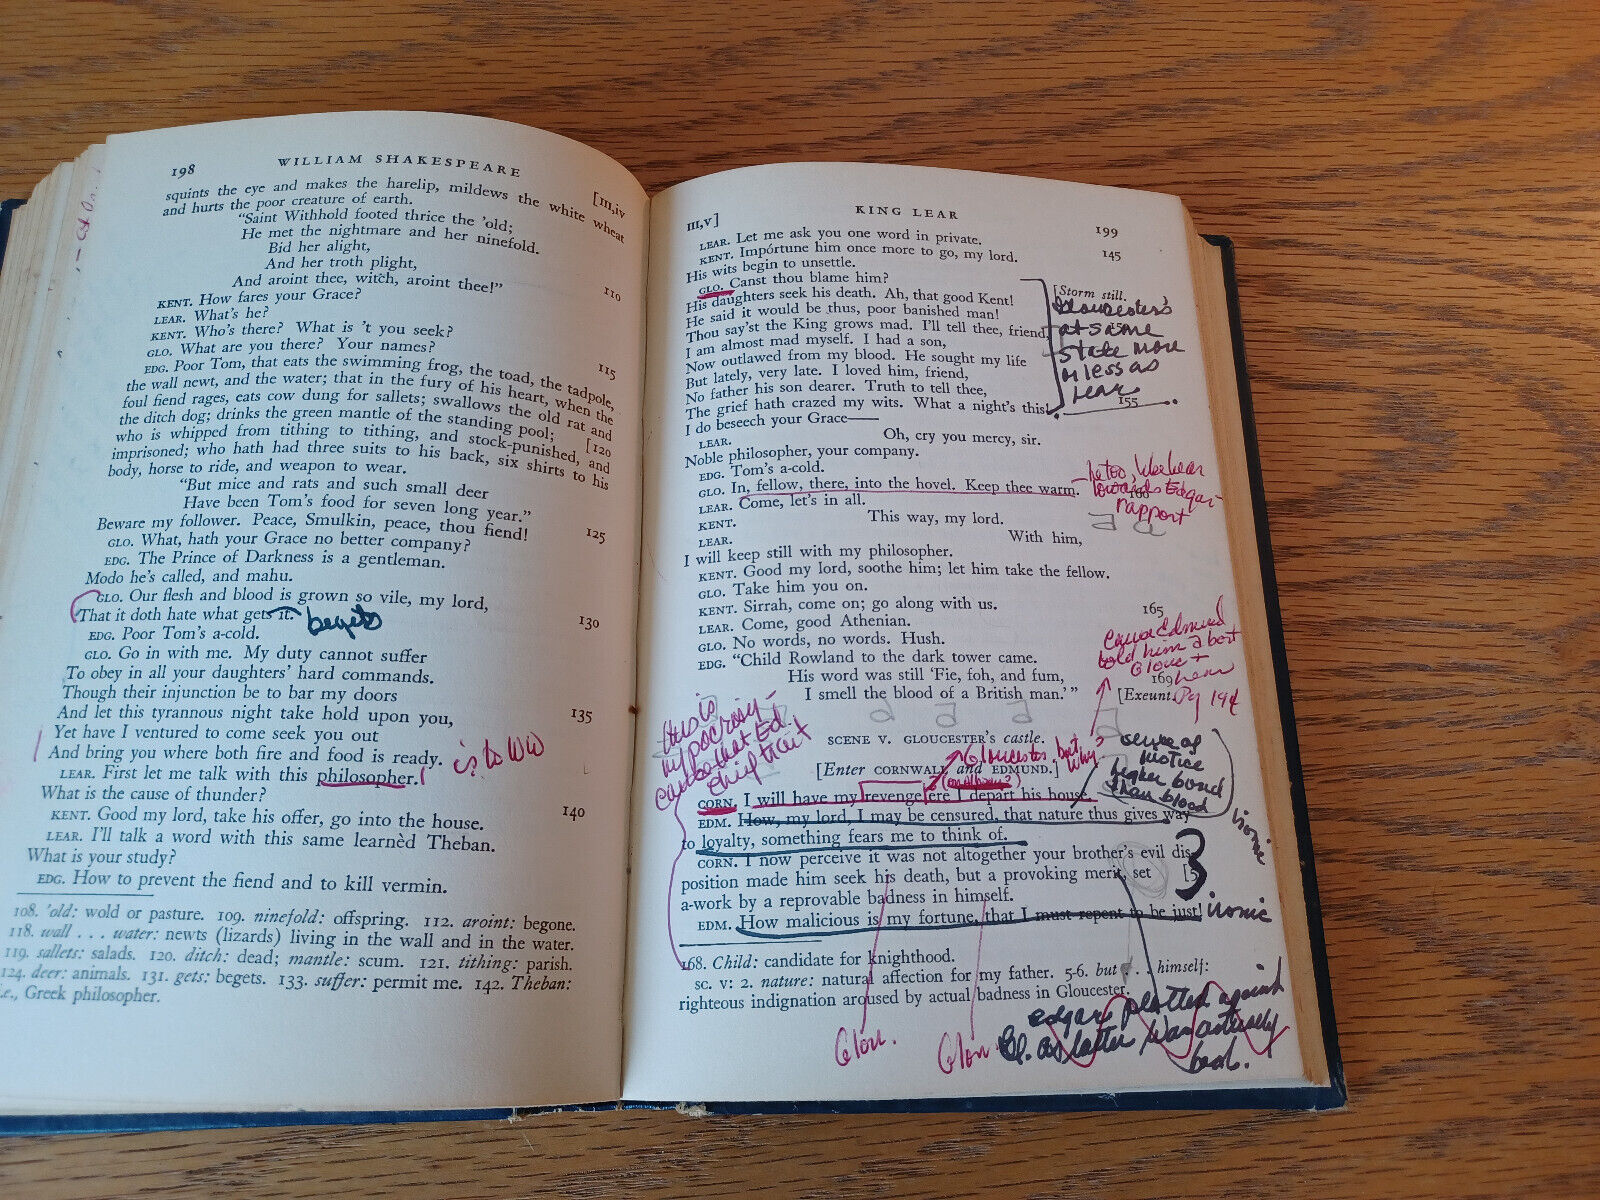 198
WILLIAM SHAKESPEARE
[III,iv
squints the eye and makes the harelip, mildews the white wheat
and hurts the poor creature of earth.
"Saint Withhold footed thrice the 'old;
He met the nightmare and her ninefold.
Bid her alight,
And her troth plight,
And aroint thee, witch, aroint thee!" 110
KENT. How fares your Grace?
LEAR. What's he?
KENT. Who's there? What is 't you seek?
GLO. What are you there? Your names? 115
EDG. Poor Tom, that eats the swimming frog, the toad, the tadpole,
the wall newt, and the water; that in the fury of his heart, when the
foul fiend rages, eats cow dung for sallets; swallows the old rat and
the ditch dog; drinks the green mantle of the standing pool;
who is whipped from tithing to tithing, and stock-punished, and [120
imprisoned; who hath had three suits to his back, six shirts to his
body, horse to ride, and weapon to wear.
"But mice and rats and such small deer
Have been Tom's food for seven long year."
Beware my follower. Peace, Smulkin, peace, thou fiend! 125
GLO. What, hath your Grace no better company?
EDG. The Prince of Darkness is a gentleman.
Modo he's called, and mahu.
GLO. Our flesh and blood is grown so vile, my lord,
That it doth hate what gets it. begets 130
EDG. Poor Tom's a-cold.
GLO. Go in with me. My duty cannot suffer
To obey in all your daughters' hard commands.
Though their injunction be to bar my doors
And let this tyrannous night take hold upon you, 135
Yet have I ventured to come seek you out
And bring you where both fire and food is ready.
LEAR. First let me talk with this philosopher.
What is the cause of thunder?
KENT. Good my lord, take his offer, go into the house. 140
LEAR. I'll talk a word with this same learnèd Theban.
What is your study?
EDG. How to prevent the fiend and to kill vermin.
108. 'old: wold or pasture. 109. ninefold: offspring. 112. aroint: begone.
118. wall . . . water: newts (lizards) living in the wall and in the water.
119. sallets: salads. 120. ditch: dead; mantle: scum. 121. tithing: parish.
124. deer: animals. 131. gets: begets. 133. suffer: permit me. 142. Theban:
i.e., Greek philosopher.
III,v]
KING LEAR
199
LEAR. Let me ask you one word in private.
KENT. Impórtune him once more to go, my lord. 145
His wits begin to unsettle.
GLO. Canst thou blame him?
[Storm still.
His daughters seek his death. Ah, that good Kent!
He said it would be thus, poor banished man!
Thou say'st the King grows mad. I'll tell thee, friend,
I am almost mad myself. I had a son,
Now outlawed from my blood. He sought my life
But lately, very late. I loved him, friend,
No father his son dearer. Truth to tell thee,
The grief hath crazed my wits. What a night's this! 155
I do beseech your Grace—
Gloucester's
at same
state more
or less as
Lear
LEAR. Oh, cry you mercy, sir.
Noble philosopher, your company.
EDG. Tom's a-cold.
GLO. In, fellow, there, into the hovel. Keep thee warm. 160
he too, like Lear
towards Edgar
rapport
LEAR. Come, let's in all.
KENT. This way, my lord.
LEAR. With him,
I will keep still with my philosopher.
KENT. Good my lord, soothe him; let him take the fellow.
GLO. Take him you on.
KENT. Sirrah, come on; go along with us. 165
LEAR. Come, good Athenian.
GLO. No words, no words. Hush.
EDG. "Child Rowland to the dark tower came.
His word was still 'Fie, foh, and fum, 169
I smell the blood of a British man.'"
[Exeunt.
Edmund
told him about
Glou +
Lear
Pg 194
SCENE V. GLOUCESTER'S castle.
Gloucester. but
why?
[Enter CORNWALL and EDMUND.]
CORN. I will have my revenge ere I depart his house.
EDM. How, my lord, I may be censured, that nature thus gives way
to loyalty, something fears me to think of.
CORN. I now perceive it was not altogether your brother's evil dis-
position made him seek his death, but a provoking merit, set [5
a-work by a reprovable badness in himself.
EDM. How malicious is my fortune, that I must repent to be just!
this is
hypocrisy
that Ed.
chief trait
sense of
justice
higher bond
than blood
ironic
3
ironic
168. Child: candidate for knighthood.
SC. V: 2. nature: natural affection for my father. 5-6. but . . . himself:
righteous indignation aroused by actual badness in Gloucester.
Glou.
Glou.
edgar plotted against
Gl. as latter was actually
bad.